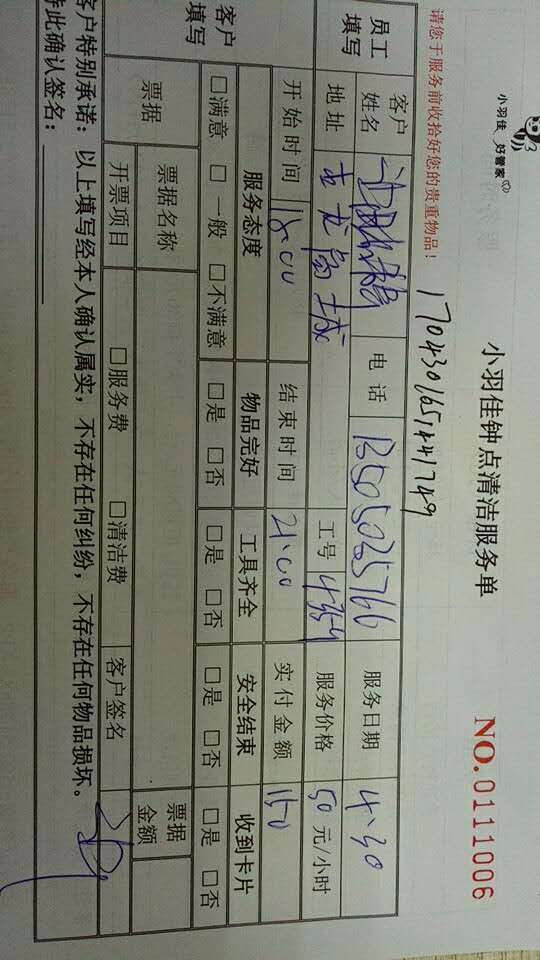 小羽佳 好管家
小羽佳钟点清洁服务单
NO.0111006
请您于服务前收拾好您的贵重物品！
1704301651441749
员工填写 客户姓名 电话 13505035766 服务日期 4.30
地址 工号 4354 服务价格 50 元/小时
客户填写 开始时间 18:00 结束时间 21:00 实付金额 150
服务态度 物品完好 工具齐全 安全结束 收到卡片
□满意 □一般 □不满意 □是 □否 □是 □否 □是 □否 □是 □否
票据 票据名称 票据金额
开票项目 □服务费 □清洁费 客户签名
客户特别承诺：以上填写经本人确认属实，不存在任何纠纷，不存在任何物品损坏。
特此确认签名：